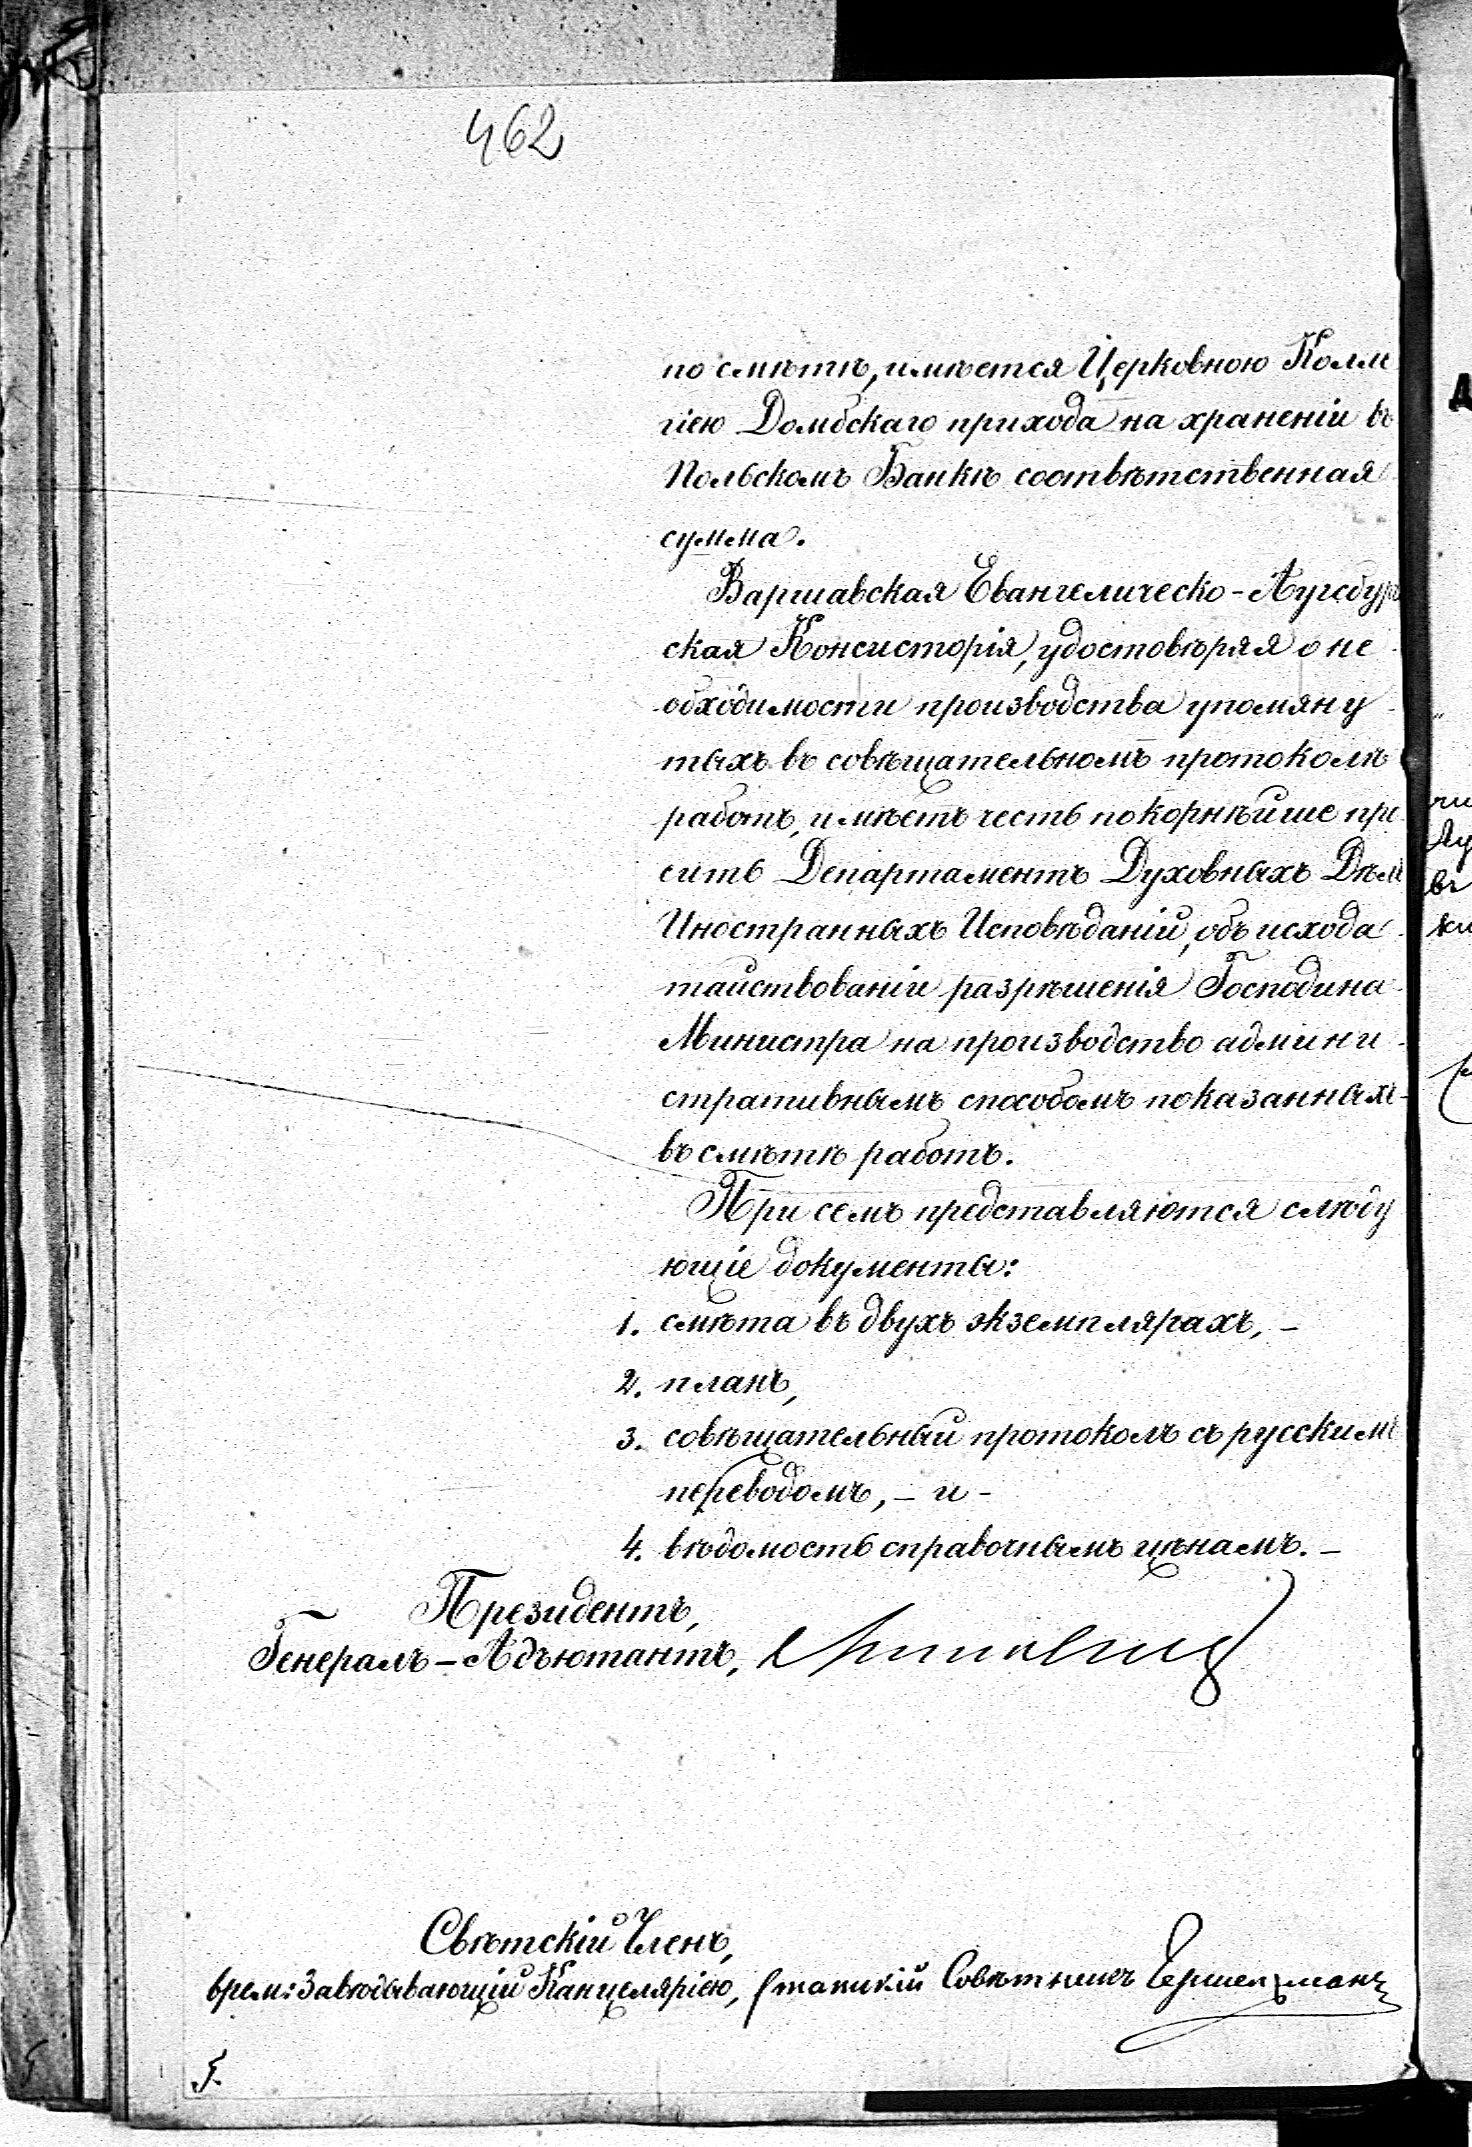 462
по смѣтѣ, имѣется Церковною Колле
гіею Домбскаго прихода на храненіи въ
Польскомъ Банкѣ соотвѣтственная
сумма.
Варшавская Евангелическо-Аугсбург
ская Консисторія, удостовѣряя о не
обходимости производства упомяну-
тыхъ въ совѣщательномъ протоколѣ
работъ, имѣетъ честь покорнѣйше про
сить Департаментъ Духовныхъ Дѣлъ
Иностранныхъ Исповѣданій, объ исхода-
тайствованіи разрѣшенія Господина
Министра на производство админи-
стративнымъ способомъ показанныхъ
въ смѣтѣ работъ.
При семъ представляются слѣду
ющіе документы:
1. смѣта въ двухъ экземплярахъ, –
2. планъ,
3. совѣщательный протоколъ съ русскимъ
переводомъ, – и –
4. вѣдомость справочнымъ цѣнамъ. –
Президентъ,
Генералъ-Адъютантъ,
Свѣтскій Членъ,
врем: Завѣдывающій Канцеляріею, Статскій Совѣтникъ Гершельманъ